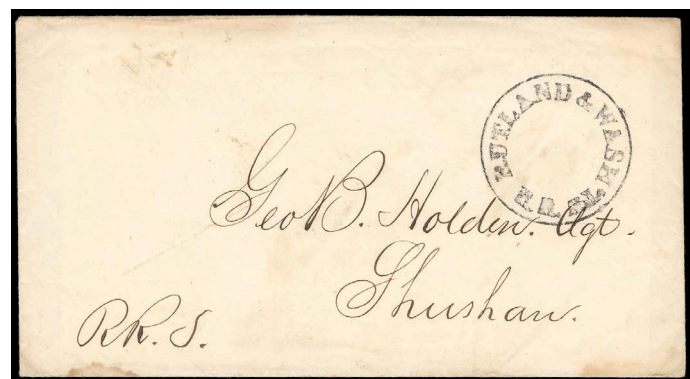 RUTLAND & WASH.
R.R.
Geo B. Holden. Agt.
Shushan.
RR. S.